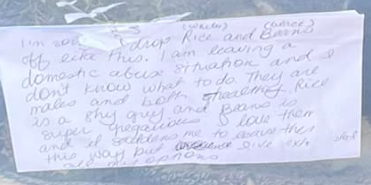 (white) (black)
I'm sorry I drop Rice and Beans
off like this. I am leaving a
domestic abuse situation and I
don't know what to do. They are
males and both healthy. Rice
is a shy guy and Beans is
super gregarious I love them
and it saddens me to leave them
this way but
my options